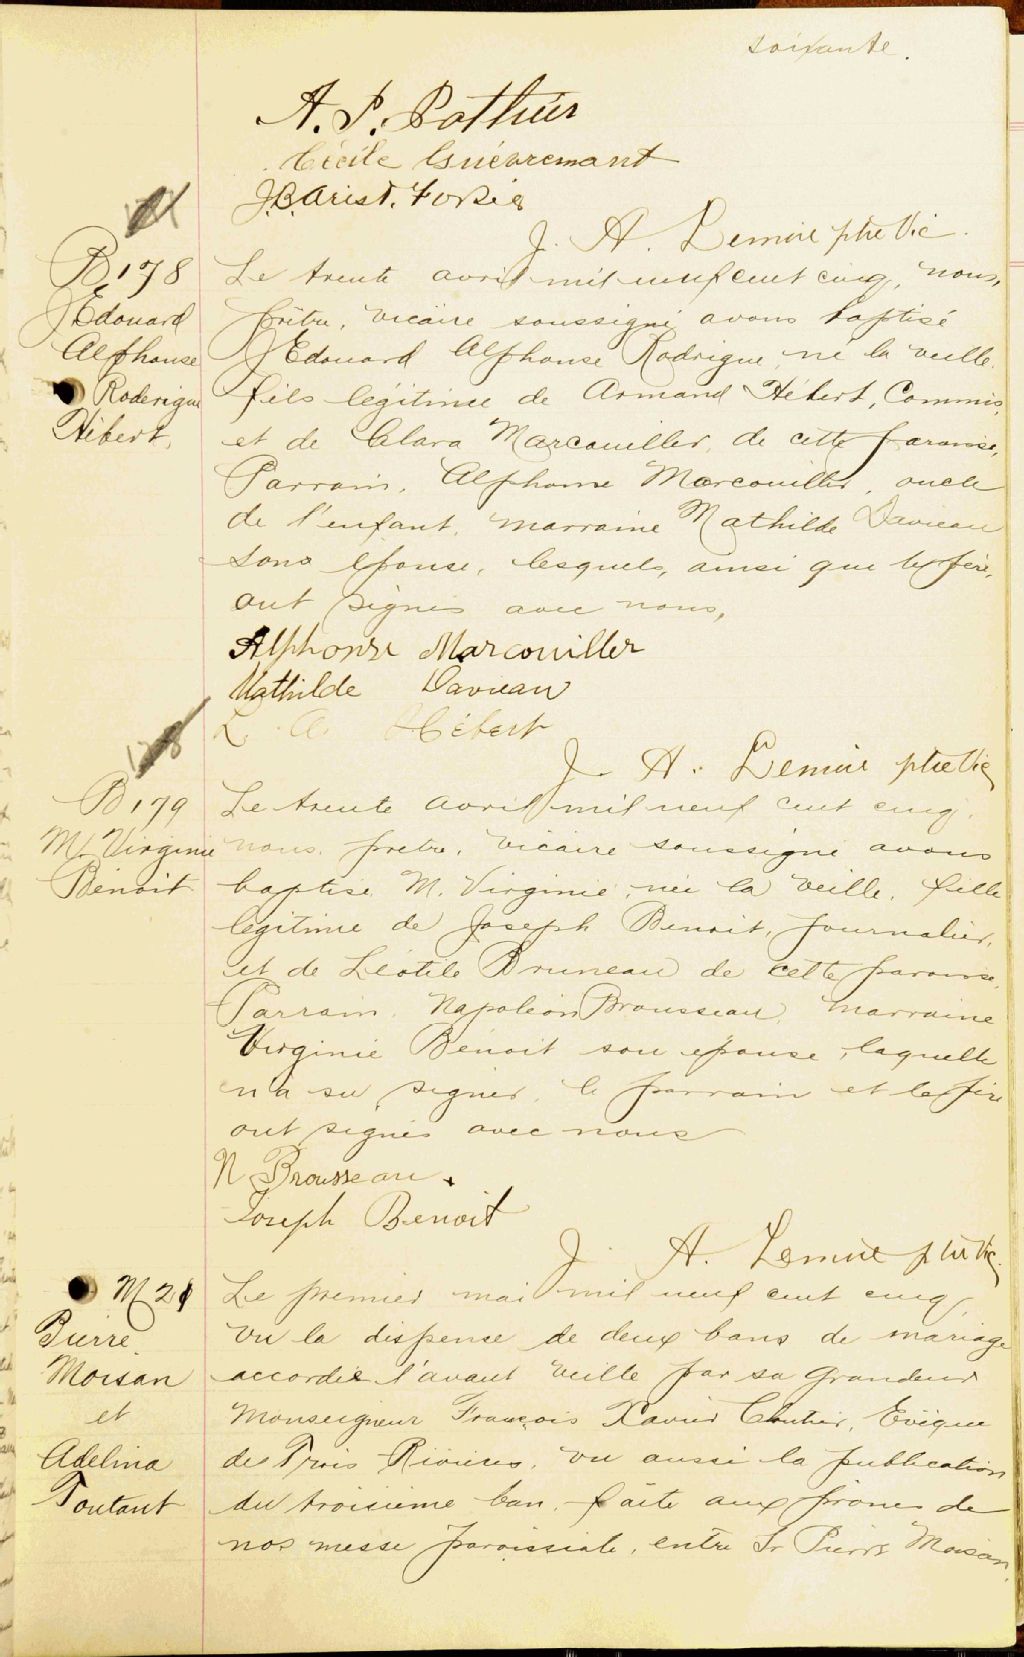 soixante.
A. P. Pothier
Cécile Guèvremant
J.B. Arist. Fortier
J. A. Lemire ptre Vic.
177
B 178
J Edouard
Alphonse
Roderigue
Hébert.
Le trente avril mil neuf cent cinq, nous,
prêtre, vicaire soussigné avons baptisé
J Edouard Alphonse Rodrigue, né la veille,
fils légitime de Armand Hébert, Commis,
et de Clara Marcouiller, de cette paroisse,
Parrain, Alphonse Marcouiller, oncle
de l'enfant, marraine Mathilde Davieau
son épouse, lesquels, ainsi que le père,
ont signés avec nous,
Alphonse Marcouiller
Mathilde Davieau
L. A. Hébert
J. A. Lemire ptre Vic
178
B 179
M. Virginie
Benoit
Le trente avril mil neuf cent cinq,
nous, prêtre, vicaire soussigné avons
baptisé M. Virginie, née la veille, fille
légitime de Joseph Benoit, journalier,
et de Léotile Bruneau de cette paroisse,
Parrain, Napoléon Brousseau, marraine
Virginie Benoit son épouse, laquelle
n'a su signer, le parrain et le père
ont signés avec nous
N. Brousseau.
Joseph Benoit
J. A. Lemire ptre Vic.
M 21
Pierre
Moisan
et
Adelina
Toutant
Le premier mai mil neuf cent cinq,
vu la dispense de deux bans de mariage
accordée l'avant veille par sa Grandeur
Monseigneur François Xavier Cloutier, Evêque
des Trois Rivières, vu aussi la publication
du troisième ban faite aux prônes de
nos messe paroissiale, entre Sr Pierre Moisan,